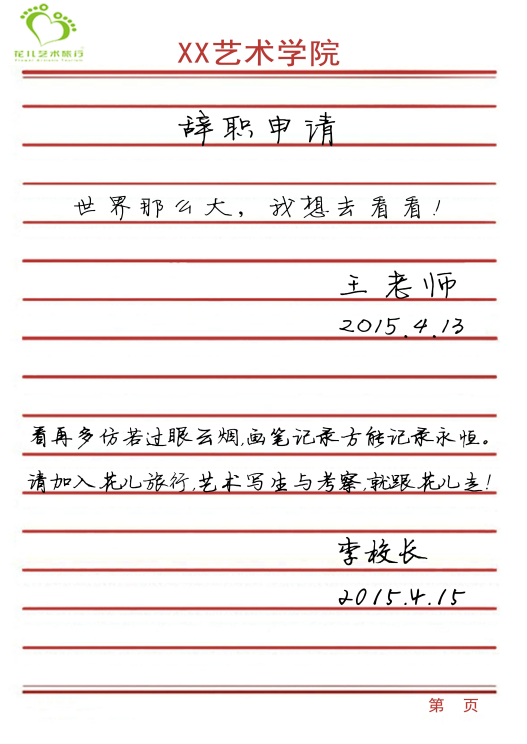 花儿艺术旅行
Flower Artistic Tourism
XX艺术学院
辞职申请
世界那么大，我想去看看！
王老师
2015.4.13
看再多仿若过眼云烟,画笔记录方能记录永恒。
请加入花儿旅行,艺术写生与考察,就跟花儿走！
李校长
2015.4.15
第 页